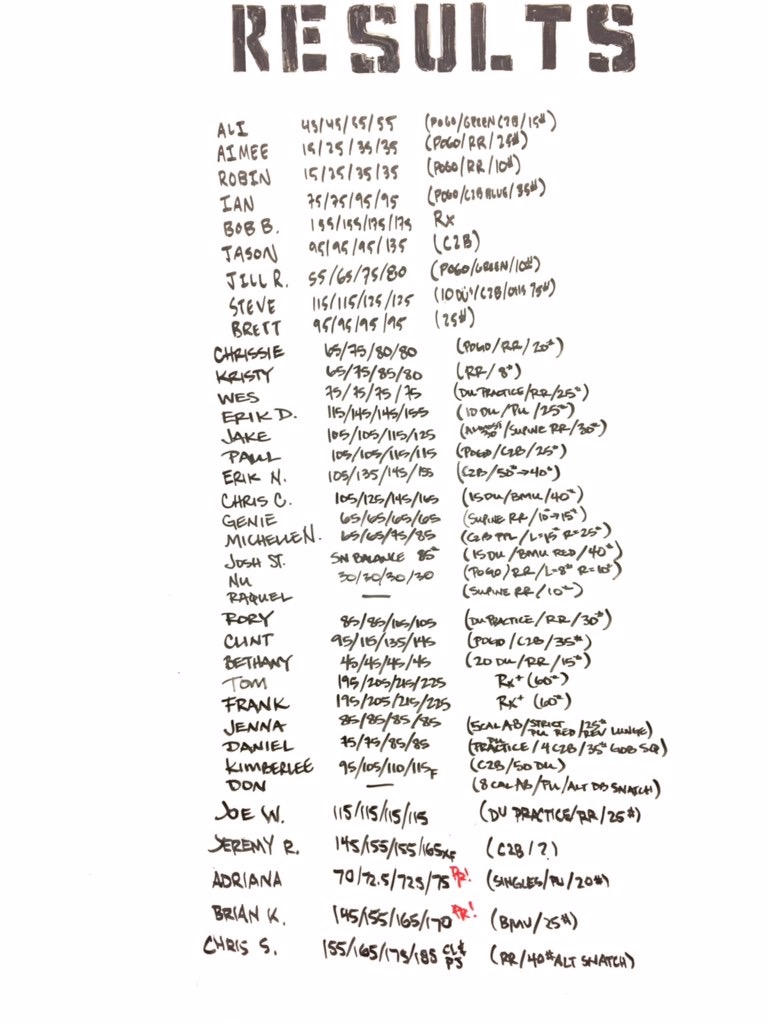 RESULTS
ALI 45/45/55/55 (POGO/GREEN C2B/15#)
AIMEE 15/25/35/35 (POGO/RR/25#)
ROBIN 15/25/35/35 (POGO/RR/10#)
IAN 75/75/95/95 (POGO/C2B BLUE/35#)
BOB B. 155/155/175/175 Rx
JASON 95/95/95/135 (C2B)
JILL R. 55/65/75/80 (POGO/GREEN/10#)
STEVE 115/115/125/125 (10 DU's/C2B/ 75#)
BRETT 95/95/95/95 (25#)
CHRISSIE 65/75/80/80 (POGO/RR/20#)
KRISTY 65/75/85/80 (RR/8#)
WES 75/75/75/75 (DU PRACTICE/RR/25#)
ERIK D. 115/145/145/155 (10 DU/PU/25#)
JAKE 105/105/115/125 (30/SUPINE RR/30#)
PAUL 105/105/115/115 (POGO/C2B/25#)
ERIK N. 105/135/145/155 (C2B/50#→40#)
CHRIS C. 105/125/145/165 (15 DU/BMU/40#)
GENIE 65/65/65/65 (SUPINE RR/10#→15#)
MICHELLE N. 65/65/75/85 (C2B PPL/L=15# R=25#)
JOSH ST. SN BALANCE 85# (15 DU/BMU RED/40#)
NU 30/30/30/30 (POGO/RR/L=8# R=10#)
RAQUEL — (SUPINE RR/10#)
RORY 85/85/105/105 (DU PRACTICE/RR/30#)
CLINT 95/115/135/145 (POGO/C2B/35#)
BETHANY 45/45/45/45 (20 DU/RR/15#)
TOM 195/205/215/225 Rx+ (60#)
FRANK 195/205/215/225 Rx+ (60#)
JENNA 85/85/85/85 (5 CAL AB/STRICT PU RED/25# REV LUNGE)
DANIEL 75/75/85/85 (DU PRACTICE/4 C2B/35# GOB SQ)
KIMBERLEE 95/105/110/115F (C2B/50 DU)
DON — (8 CAL AB/PU/ALT DB SNATCH)
JOE W. 115/115/115/115 (DU PRACTICE/RR/25#)
JEREMY R. 145/155/155/165xF (C2B/?)
ADRIANA 70/72.5/72.5/75 PR! (SINGLES/PU/20#)
BRIAN K. 145/155/165/170 PR! (BMU/25#)
CHRIS S. 155/165/175/185 CL& PJ (RR/40# ALT SNATCH)